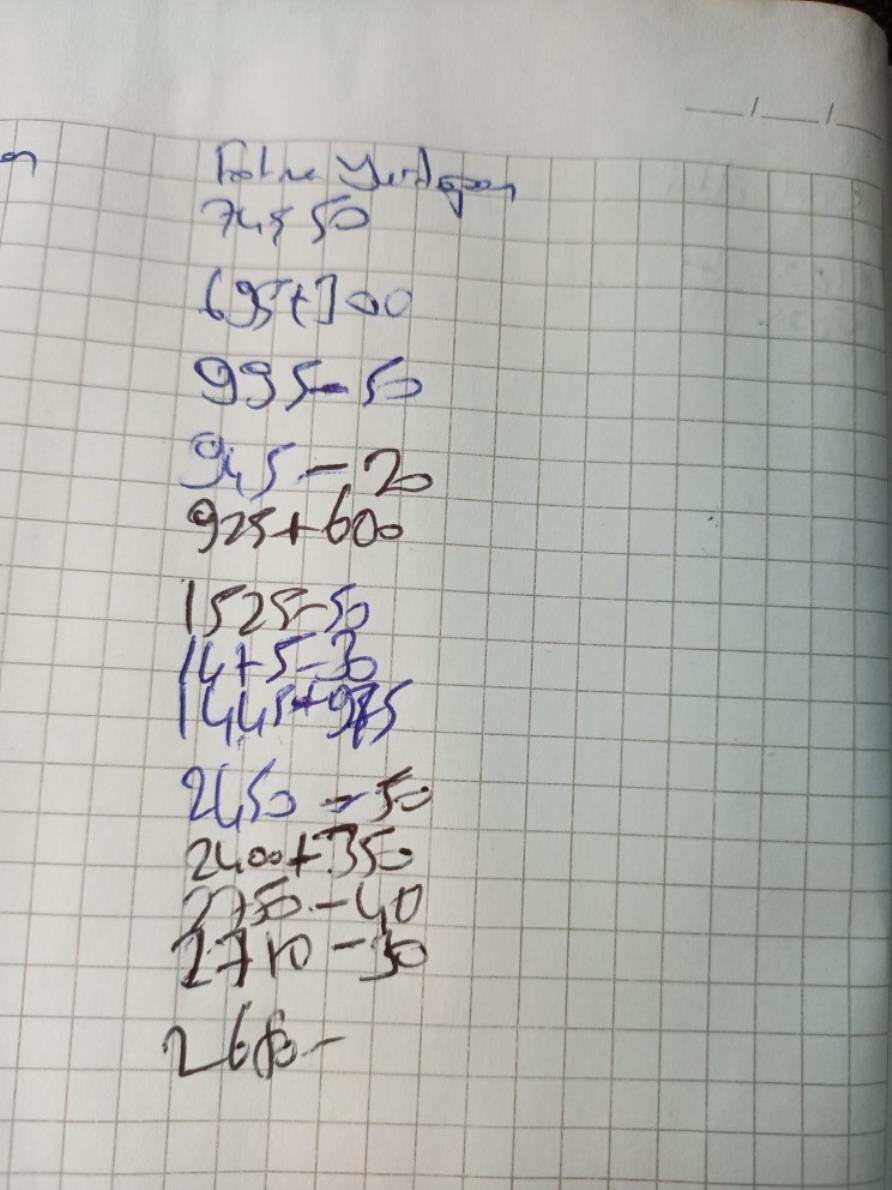 745 50
695+300
995-50
945-20
925+600
1525-50
1475-30
1445+975
2450-50
2400+350
2750-40
2710-30
2680-